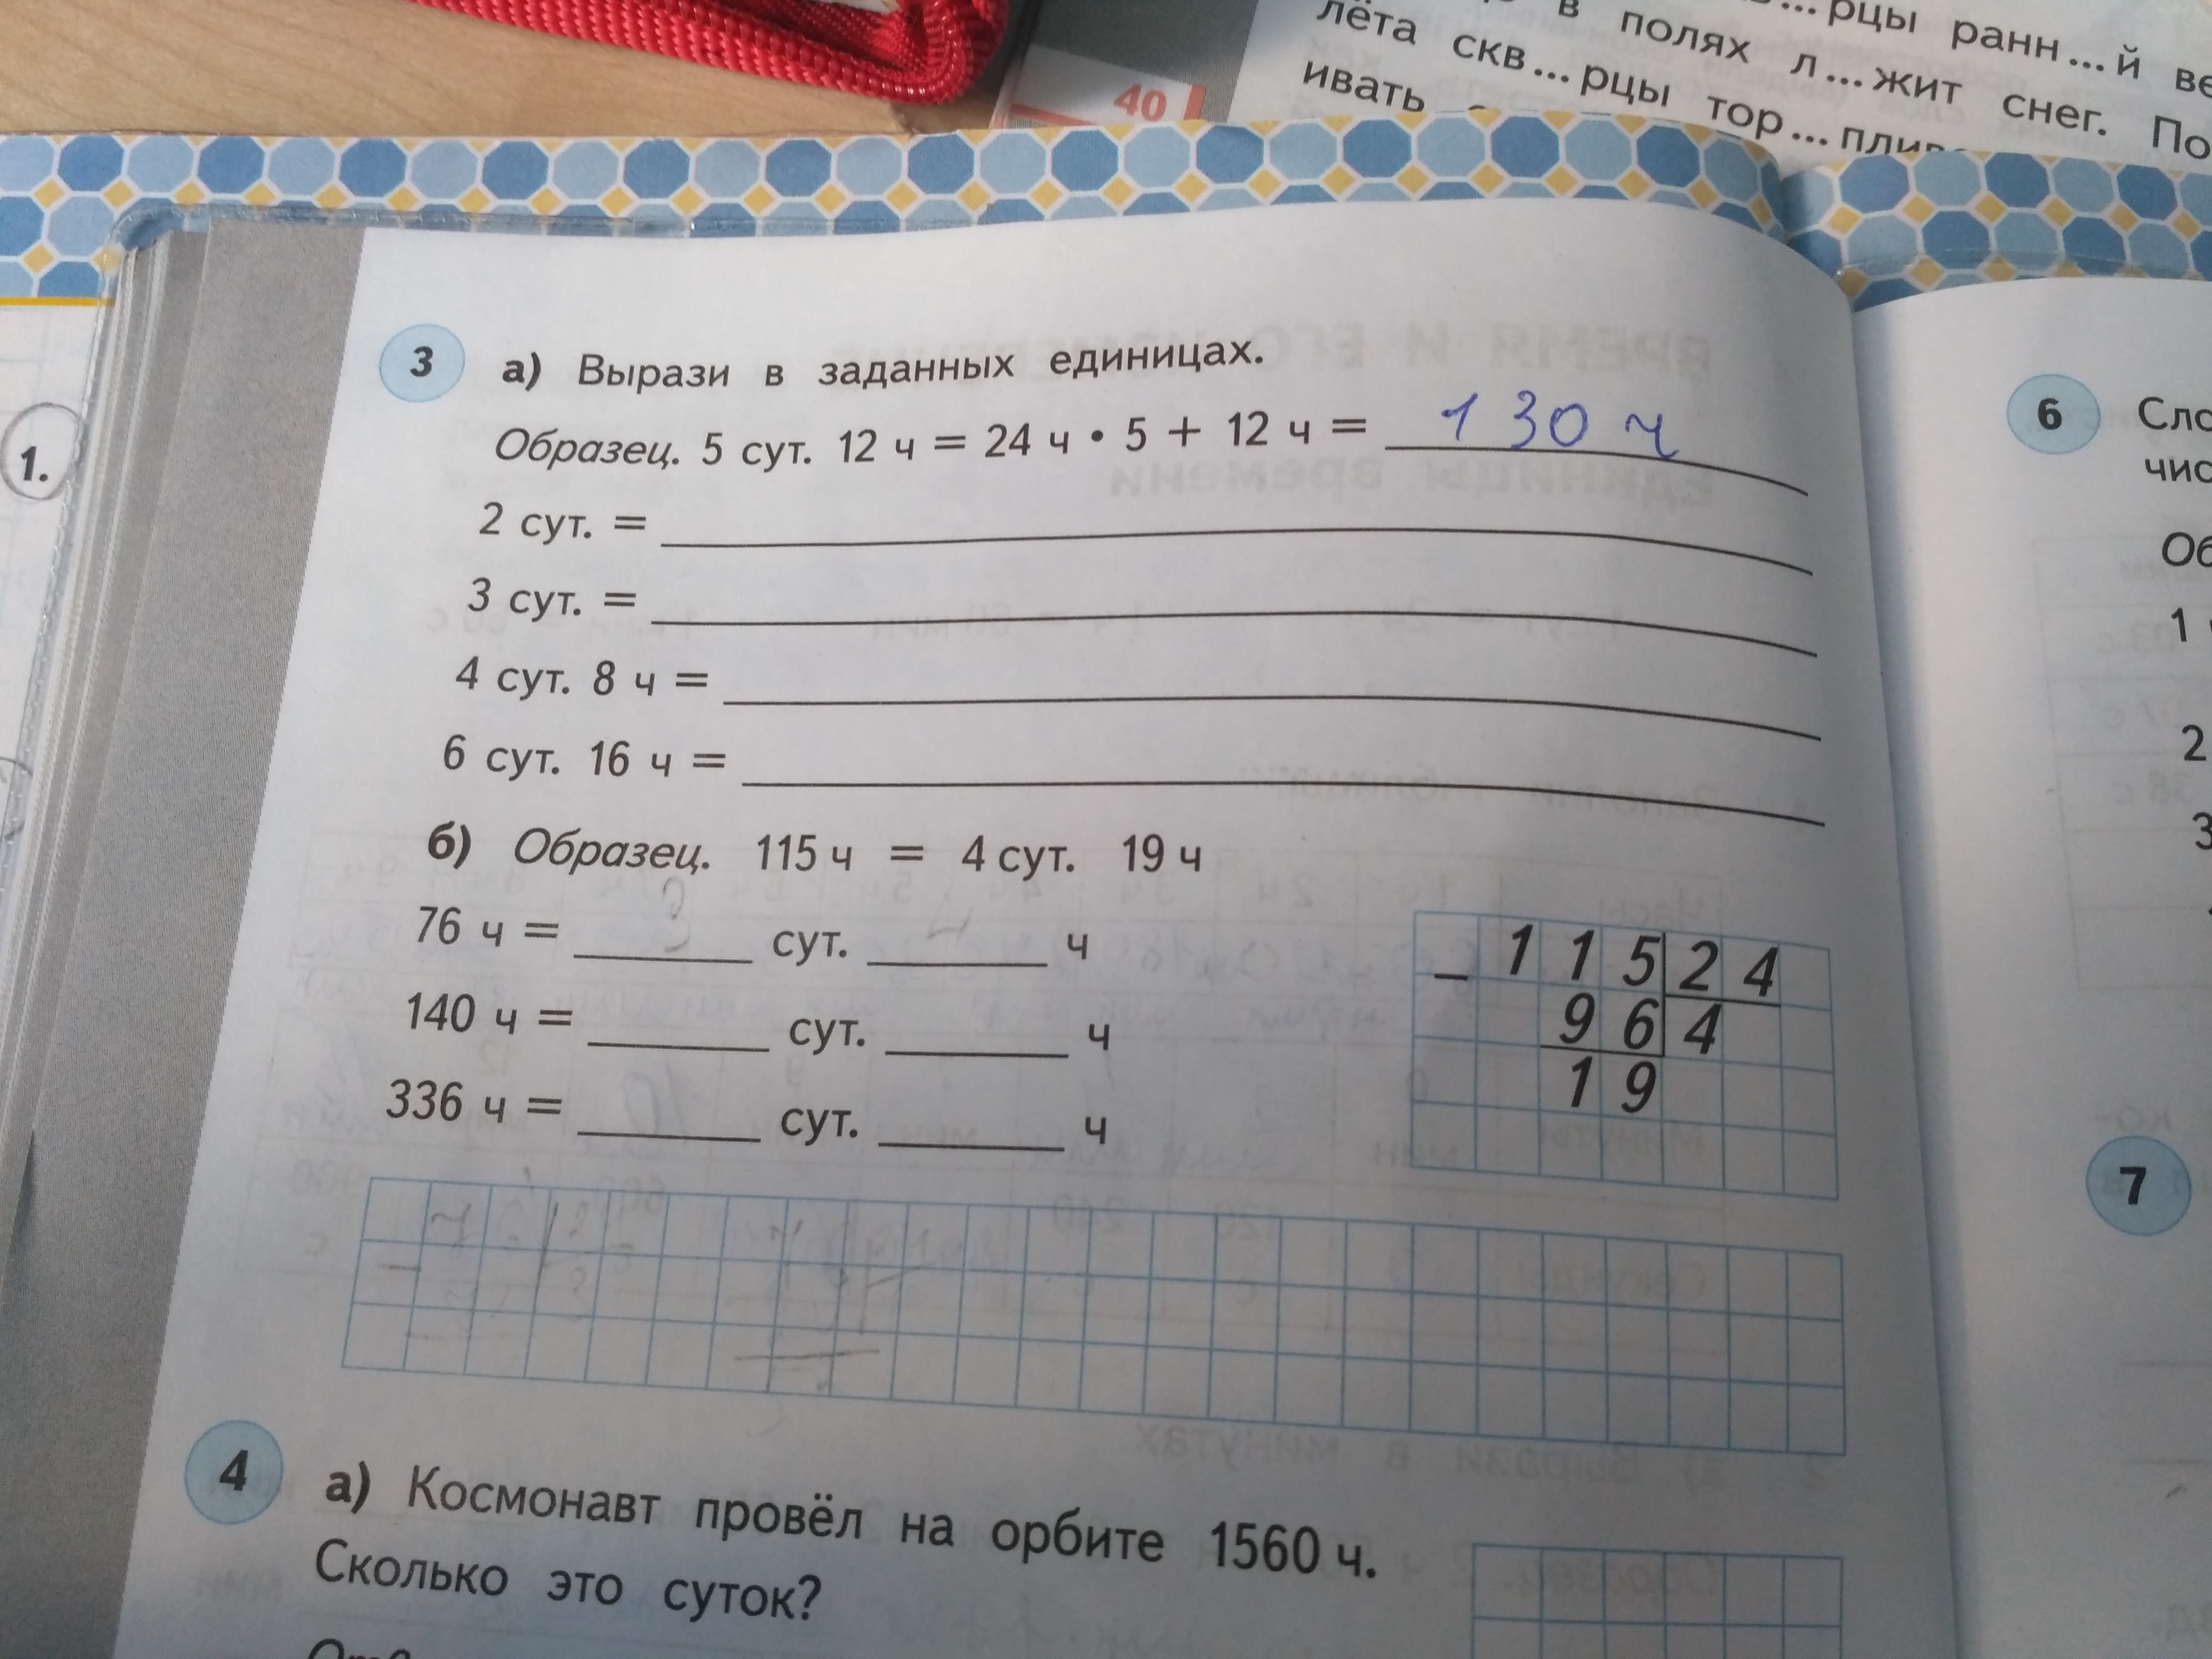 40
в полях л...жит снег. По
лёта скв...рцы тор...плив
ивать
рцы ранн...й ве
1.
3 а) Вырази в заданных единицах.
Образец. 5 сут. 12 ч = 24 ч • 5 + 12 ч = 130 ч
2 сут. =
3 сут. =
4 сут. 8 ч =
6 сут. 16 ч =
б) Образец. 115 ч = 4 сут. 19 ч
76 ч = ______ сут. ______ ч
140 ч = ______ сут. ______ ч
336 ч = ______ сут. ______ ч
– 115 24
96 4
19
4 а) Космонавт провёл на орбите 1560 ч.
Сколько это суток?
6 Сло
чис
Об
1
2
3
7